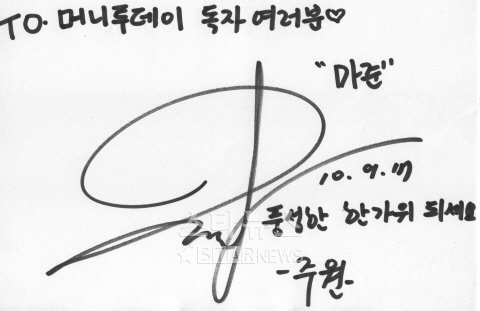 TO. 머니투데이 독자 여러분♡
"마준"
10. 9. 17
풍성한 한가위 되세요
스타뉴스
STARNEWS
-주원-